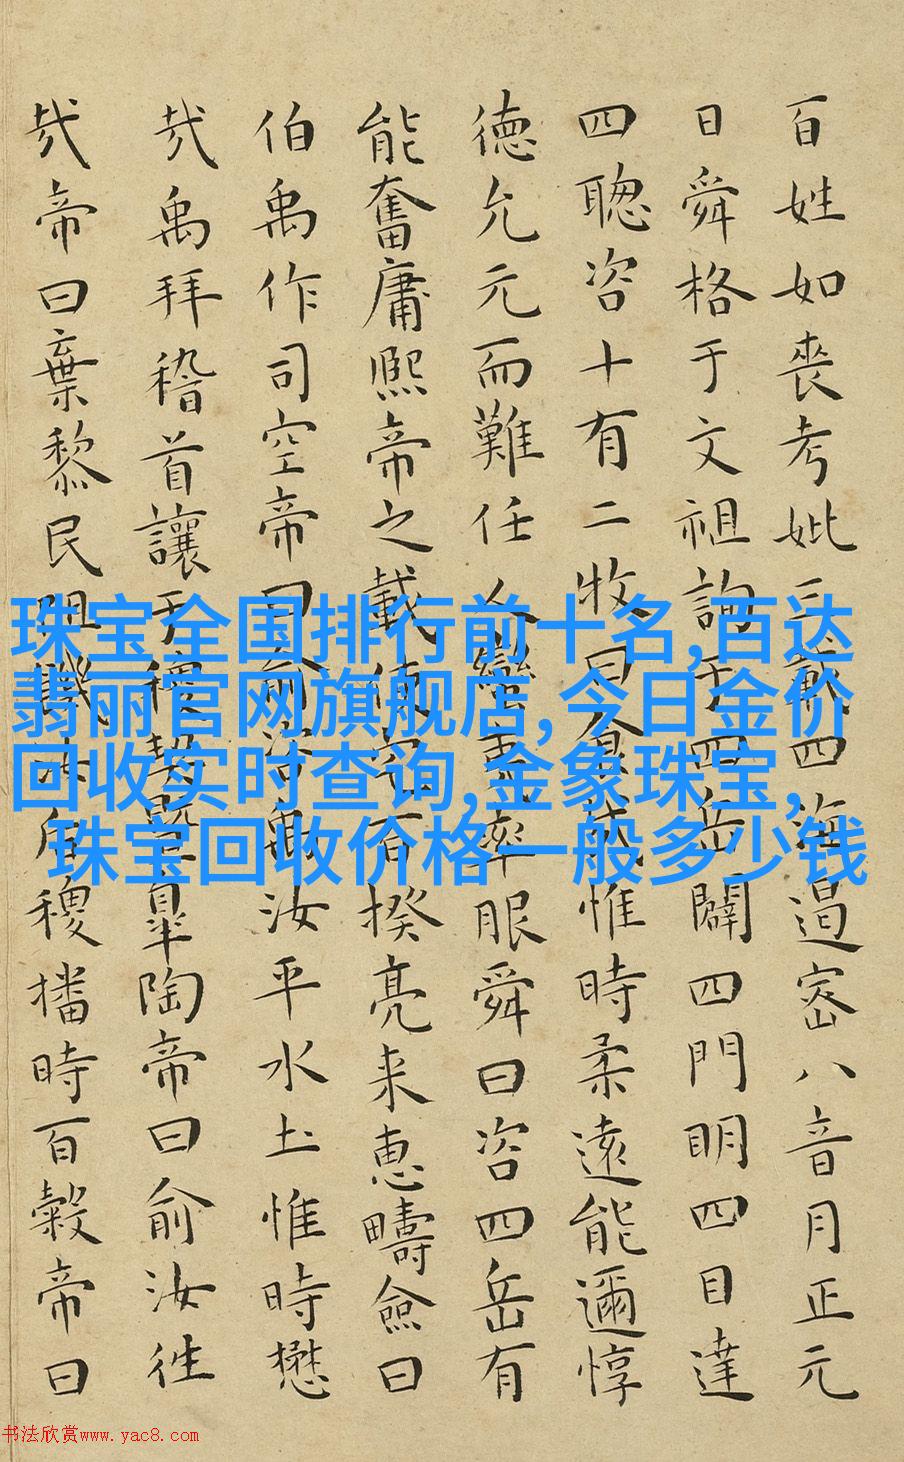 百姓如喪考妣三載四海遏密八音月正元
日舜格于文祖詢于四岳闢四門明四目達
四聰咨十有二牧曰食哉惟時柔遠能邇惇
德允元而難任人蠻夷率服舜曰咨四岳有
能奮庸熙帝之載使宅百揆亮采惠疇僉曰
伯禹作司空帝曰俞咨禹汝平水土惟時懋
哉禹拜稽首讓于稷契暨皐陶帝曰俞汝往
哉帝曰棄黎民阻飢汝后稷播時百穀帝曰
珠宝全国排行前十名,百达
翡丽官网旗舰店,今日金价
回收实时查询,金象珠宝,
珠宝回收价格一般多少钱
书法欣赏www.yac8.com